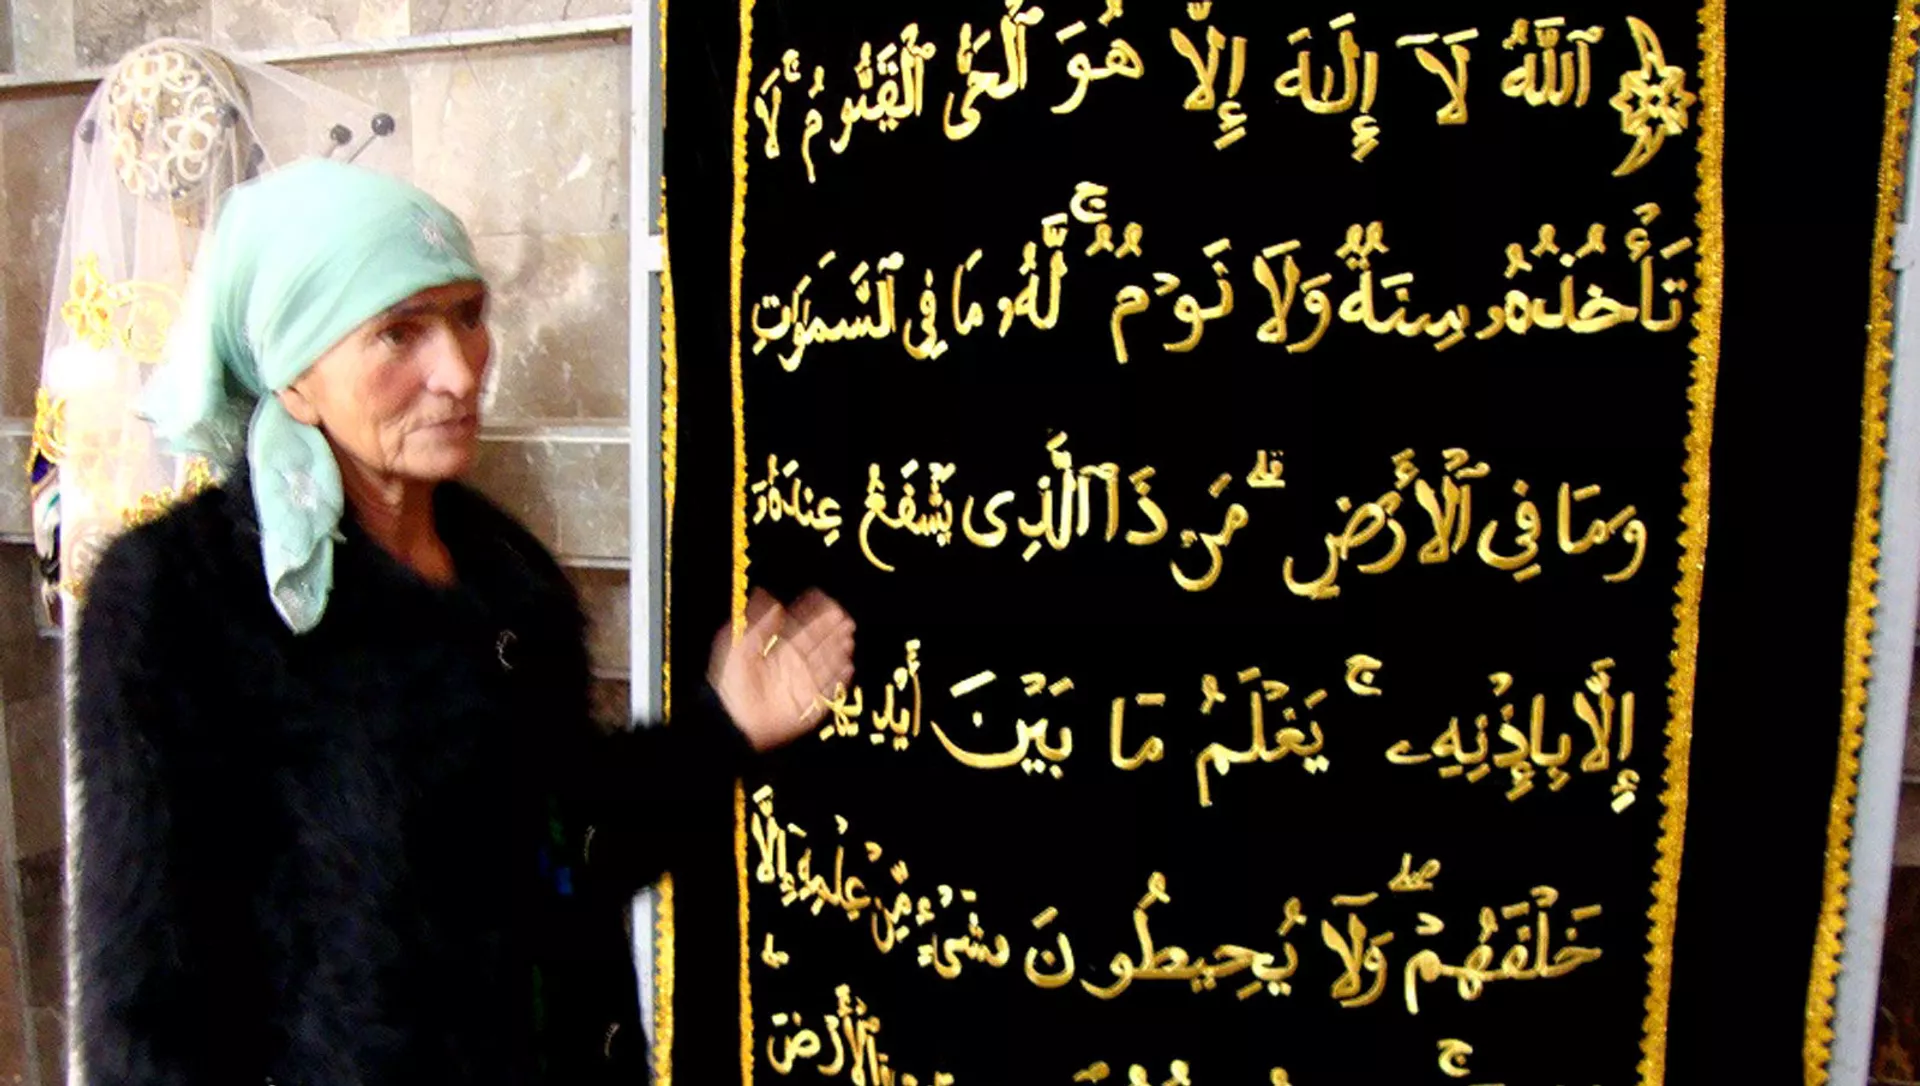 ٱللَّهُ لَآ إِلَٰهَ إِلَّا هُوَ ٱلْحَىُّ ٱلْقَيُّومُ ۚ لَا
تَأْخُذُهُۥ سِنَةٌ وَلَا نَوْمٌ ۚ لَّهُۥ مَا فِى ٱلسَّمَٰوَٰتِ
وَمَا فِى ٱلْأَرْضِ ۗ مَن ذَا ٱلَّذِى يَشْفَعُ عِندَهُۥٓ
إِلَّا بِإِذْنِهِۦ ۚ يَعْلَمُ مَا بَيْنَ أَيْدِيهِمْ
خَلْفَهُمْ ۖ وَلَا يُحِيطُونَ بِشَىْءٍ مِّنْ عِلْمِهِۦٓ إِلَّا
ٱلْأَرْضَ